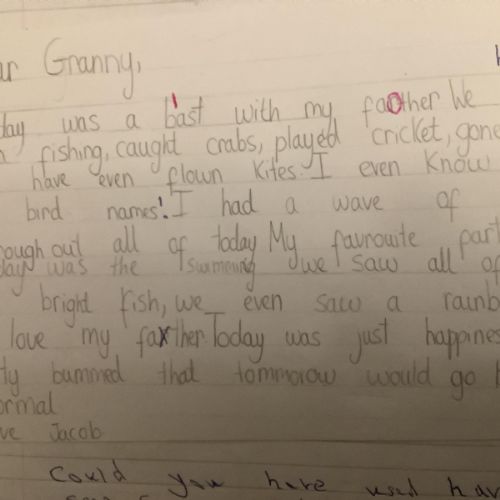 ar Granny,
day was a bast with my father We
fishing, caught crabs, played cricket, gone
have even flown kites. I even know
bird names! I had a wave of
rough out all of today My favrouite part
day was the swimming we saw all of
bright fish, we even saw a rainb
love my father. Today was just happines
ty bummed that tommorow would go
ormal
ve Jacob
Could you have used hav